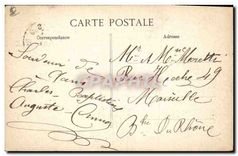 CARTE POSTALE
Correspondance
Souvenir de
Charles Baptistin
Auguste
Mr & Mme Moretti
Rue Hoche 49
Marseille
Bhe Du Rhône